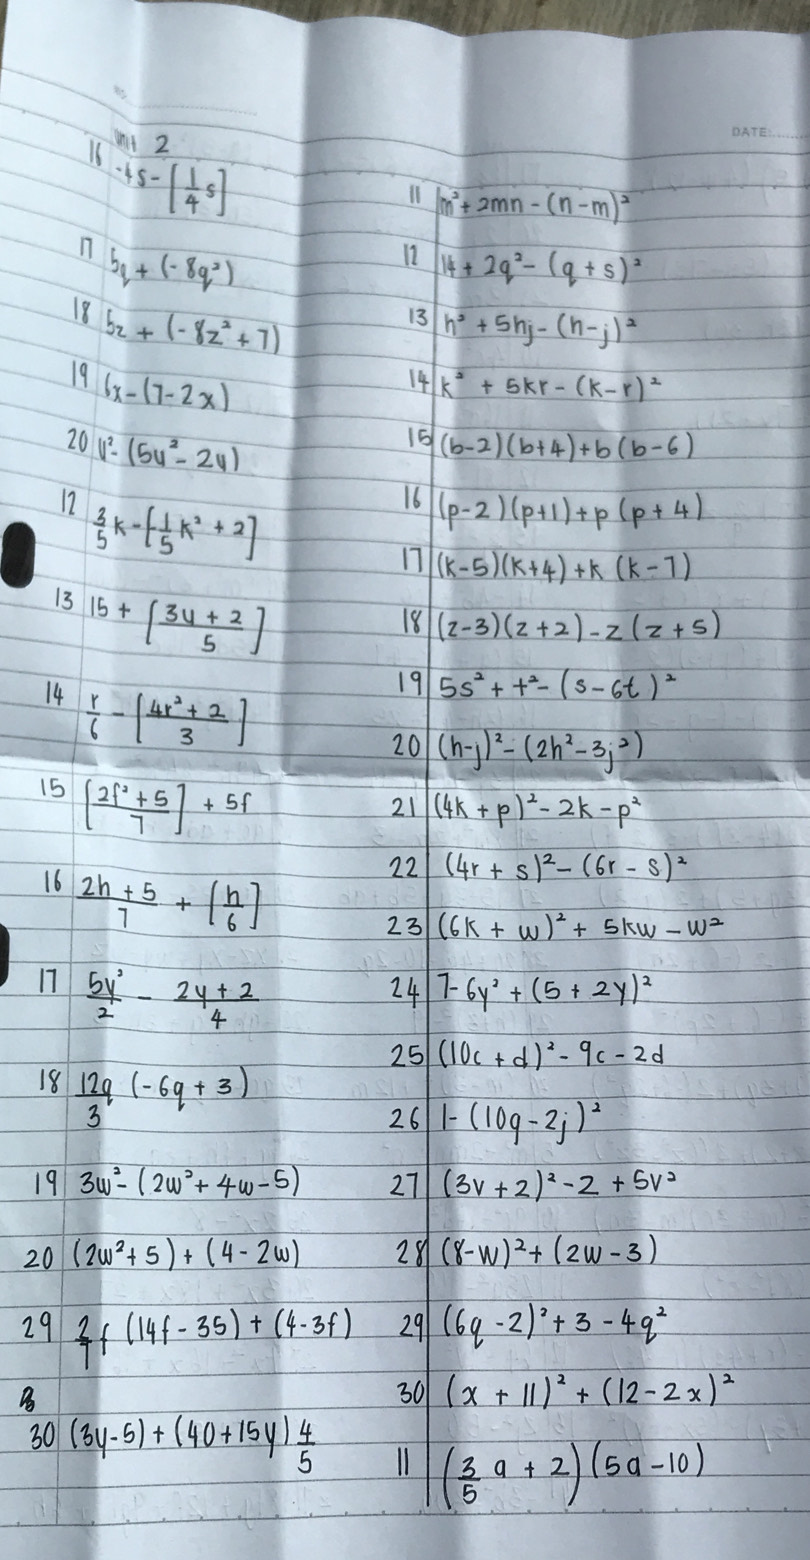 DATE:
unit 2
16 -4s - [1/4 s]
17 5q + (-8q²)
18 5z + (-8z² + 7)
19 6x - (7 - 2x)
20 y² - (5y² - 2y)
12 3/5 k - [1/5 k² + 2]
13 15 + [3y + 2 / 5]
14 r/6 - [4r² + 2 / 3]
15 [2f² + 5 / 7] + 5f
16 2h + 5 / 7 + [h/6]
17 5y² / 2 - 2y + 2 / 4
18 12q / 3 (-6q + 3)
19 3w² - (2w² + 4w - 5)
20 (2w² + 5) + (4 - 2w)
29 2/7 f (14f - 35) + (4 - 3f)
30 (3y - 5) + (40 + 15y) 4/5
11 m² + 2mn - (n - m)²
12 14 + 2q² - (q + s)²
13 h² + 5hj - (h - j)²
14 k² + 5kr - (k - r)²
15 (b - 2)(b + 4) + b (b - 6)
16 (p - 2)(p + 1) + p (p + 4)
17 (k - 5)(k + 4) + k (k - 7)
18 (z - 3)(z + 2) - z (z + 5)
19 5s² + t² - (s - 6t)²
20 (h - j)² - (2h² - 3j²)
21 (4k + p)² - 2k - p²
22 (4r + s)² - (6r - s)²
23 (6k + w)² + 5kw - w²
24 7 - 6y² + (5 + 2y)²
25 (10c + d)² - 9c - 2d
26 1 - (10q - 2j)²
27 (3v + 2)² - 2 + 5v²
28 (8 - w)² + (2w - 3)
29 (6q - 2)² + 3 - 4q²
30 (x + 11)² + (12 - 2x)²
11 (3/5 a + 2)(5a - 10)